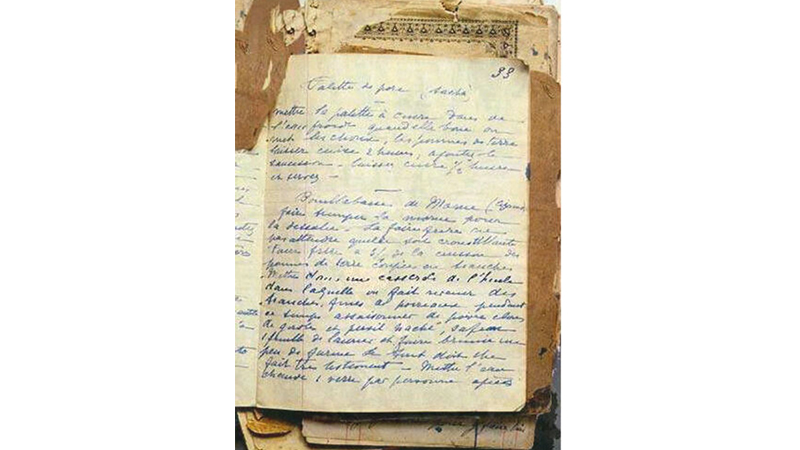 33
Palette de porc (Saché)
mettre la palette à cuire dans de
l'eau froide quand elle bout on
met les choux, les pommes de terre
laisser cuire 2 heures, ajouter le
saucisson - laisser cuire 1/2 heure
et servez -
Bouillabaisse de Morue
faire tremper la morue pour
la dessaler - La faire frire ne
pas attendre qu'elle soit croustillante
faire frire a 3/4 de la cuisson des
pommes de terre coupées en tranches
Mettre dans une casserole de l'huile
dans laquelle on fait revenir des
blanches de poireaux pendant
ce temps assaisonner de poivre clous
de girofles et persil haché, safran
1 feuille de laurier et faire brunir une
peu de farine le tout doit
fait très lestement - Mettre l'eau
chaude 1 verre par personne après